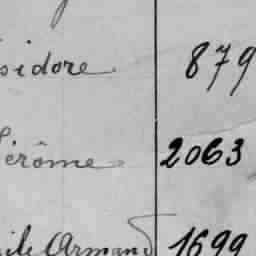 sidore 879
Jérôme 2063
ile Armand 1699